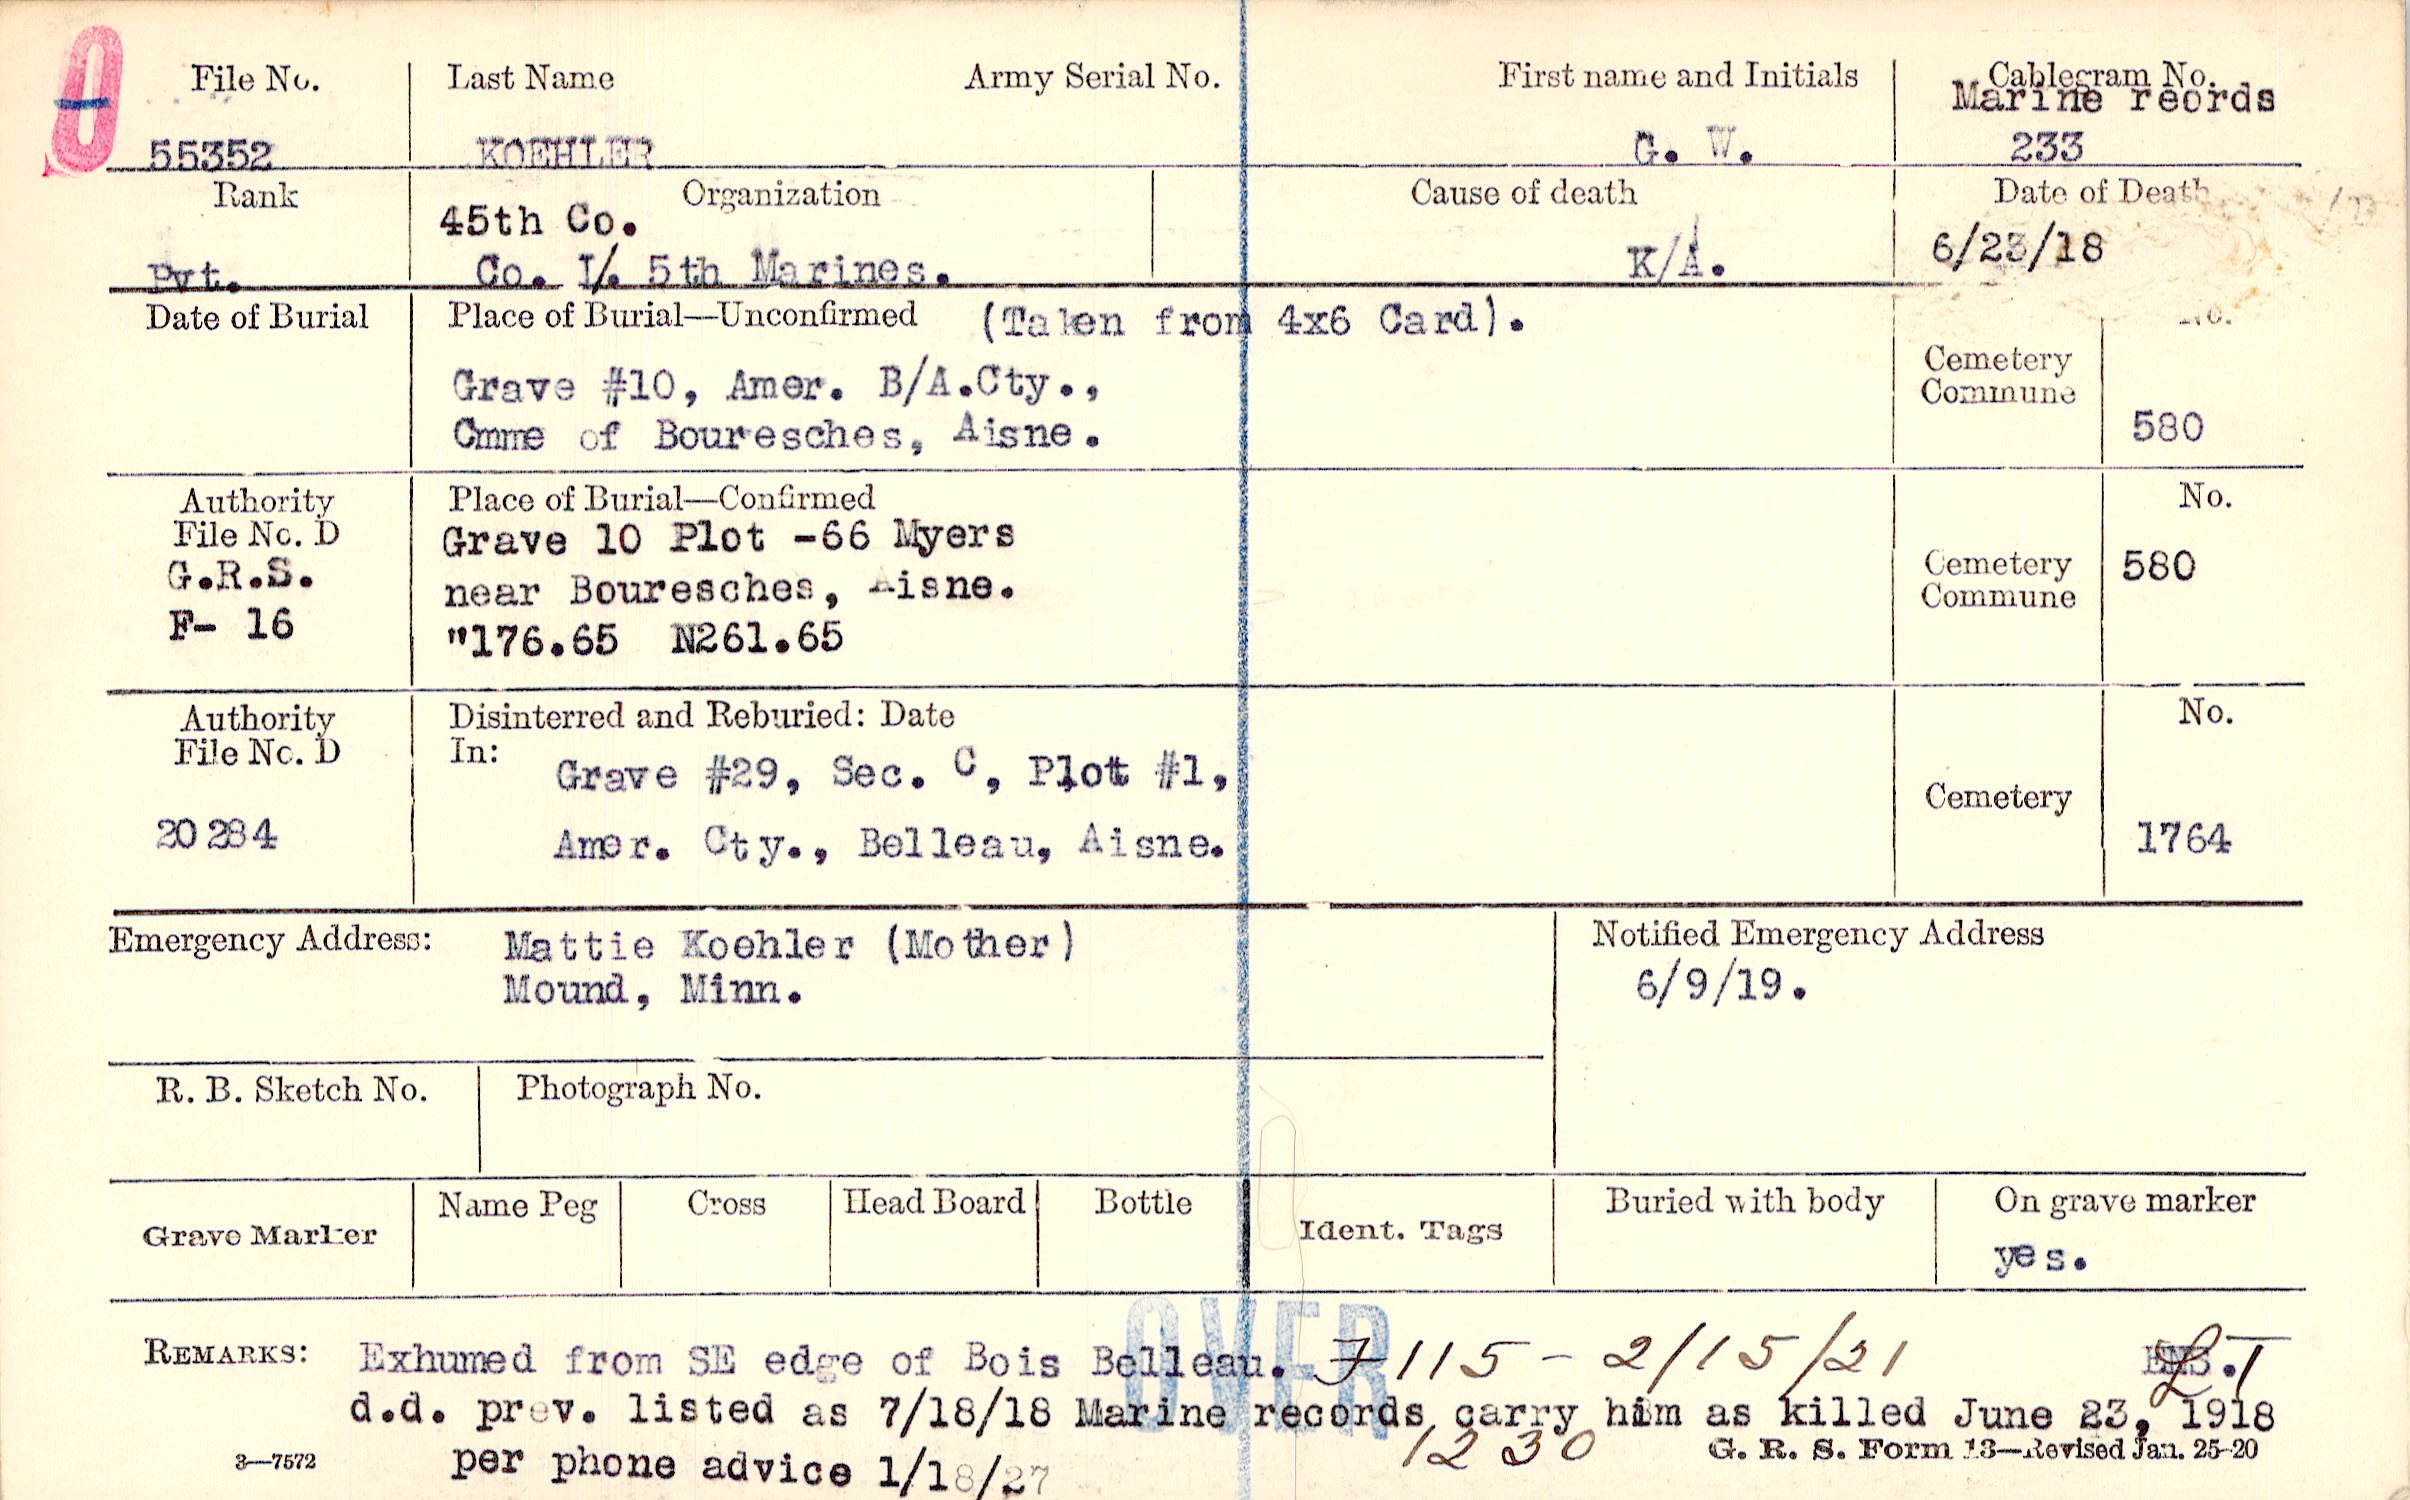 0
File No.
Last Name
Army Serial No.
First name and Initials
Cablegram No.
Marine reords
55352
KOEHLER
G. W.
233
Rank
Organization
Cause of death
Date of Death
45th Co.
Pvt.
Co. I/. 5th Marines.
K/A.
6/23/18
Date of Burial
Place of Burial—Unconfirmed (Taken from 4x6 Card).
No.
Grave #10, Amer. B/A.Cty.,
Cmme of Bouresches, Aisne.
Cemetery
Commune
580
Authority
File No. D
G.R.S.
F- 16
Place of Burial—Confirmed
Grave 10 Plot -66 Myers
near Bouresches, Aisne.
"176.65 N261.65
No.
Cemetery
Commune
580
Authority
File No. D
20284
Disinterred and Reburied: Date
In:
Grave #29, Sec. C, Plot #1,
Amer. Cty., Belleau, Aisne.
No.
Cemetery
1764
Emergency Address:
Mattie Koehler (Mother)
Mound, Minn.
Notified Emergency Address
6/9/19.
R. B. Sketch No.
Photograph No.
Grave Marker
Name Peg
Cross
Head Board
Bottle
Ident. Tags
Buried with body
On grave marker
yes.
OVER
REMARKS: Exhumed from SE edge of Bois Belleau. F 115 - 2/15/21
d.d. prev. listed as 7/18/18 Marine records carry him as killed June 23, 1918
per phone advice 1/18/27
1230
3—7572
G. R. S. Form 13—Revised Jan. 25-20